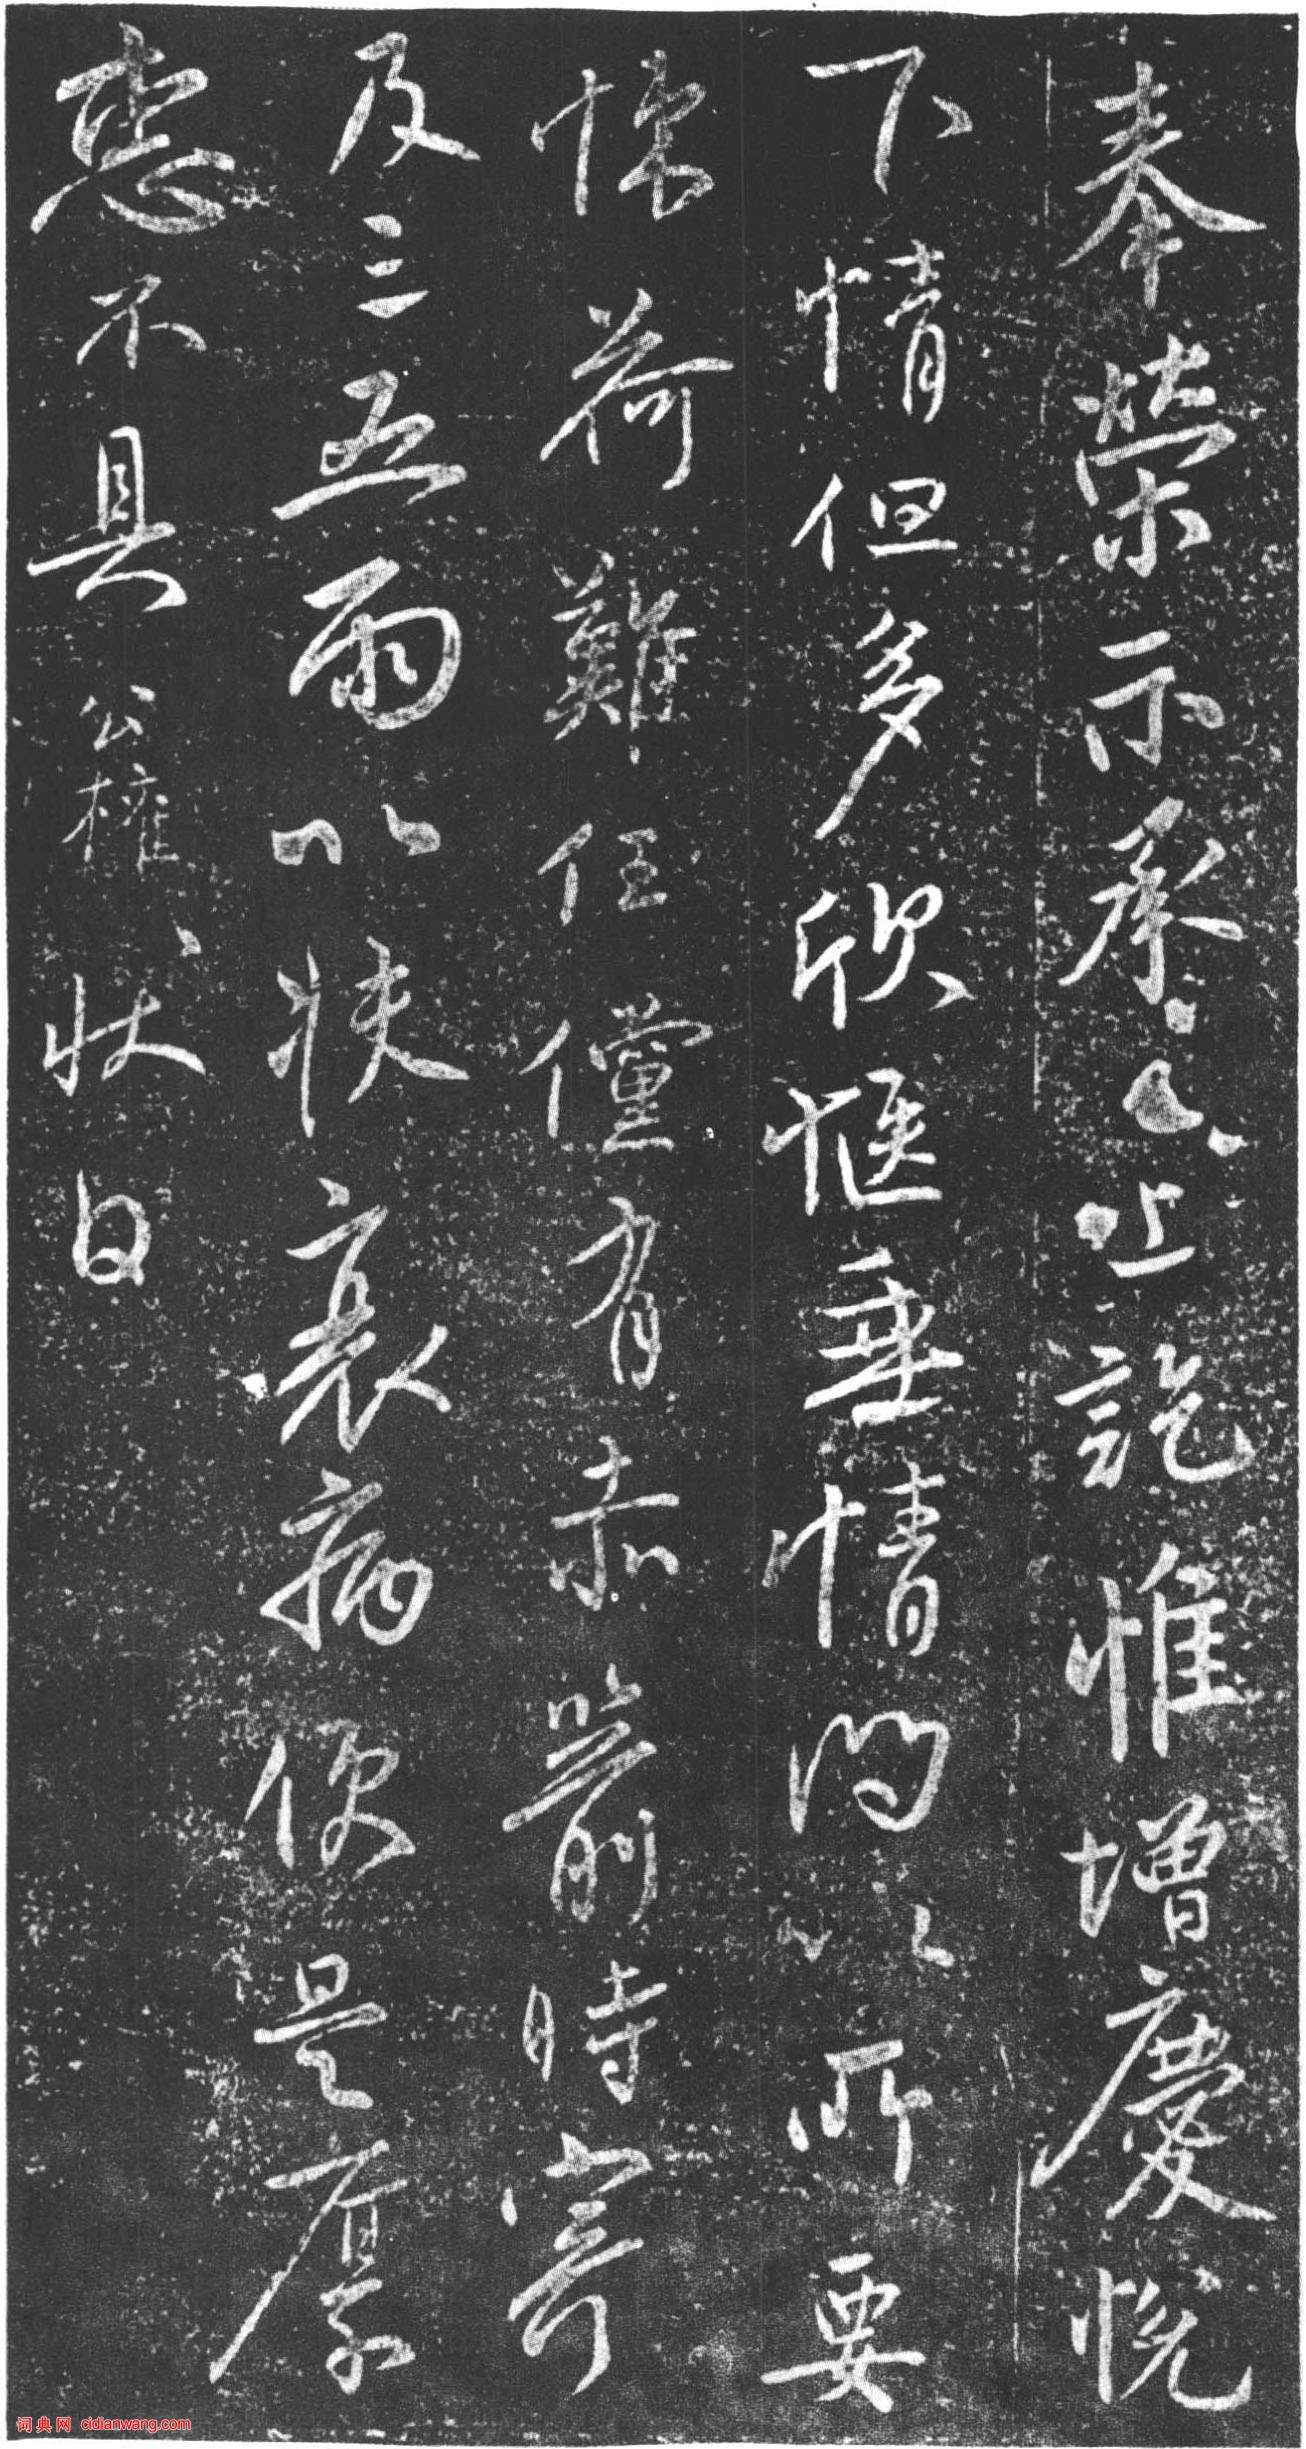 奉榮示承已上訖惟增慶悅
下情但多欣愜垂情問以所要
悚荷難任儻有赤箭時寄
及三五兩以扶衰病便是厚
惠不具公權狀白
词典网 cidianwang.com